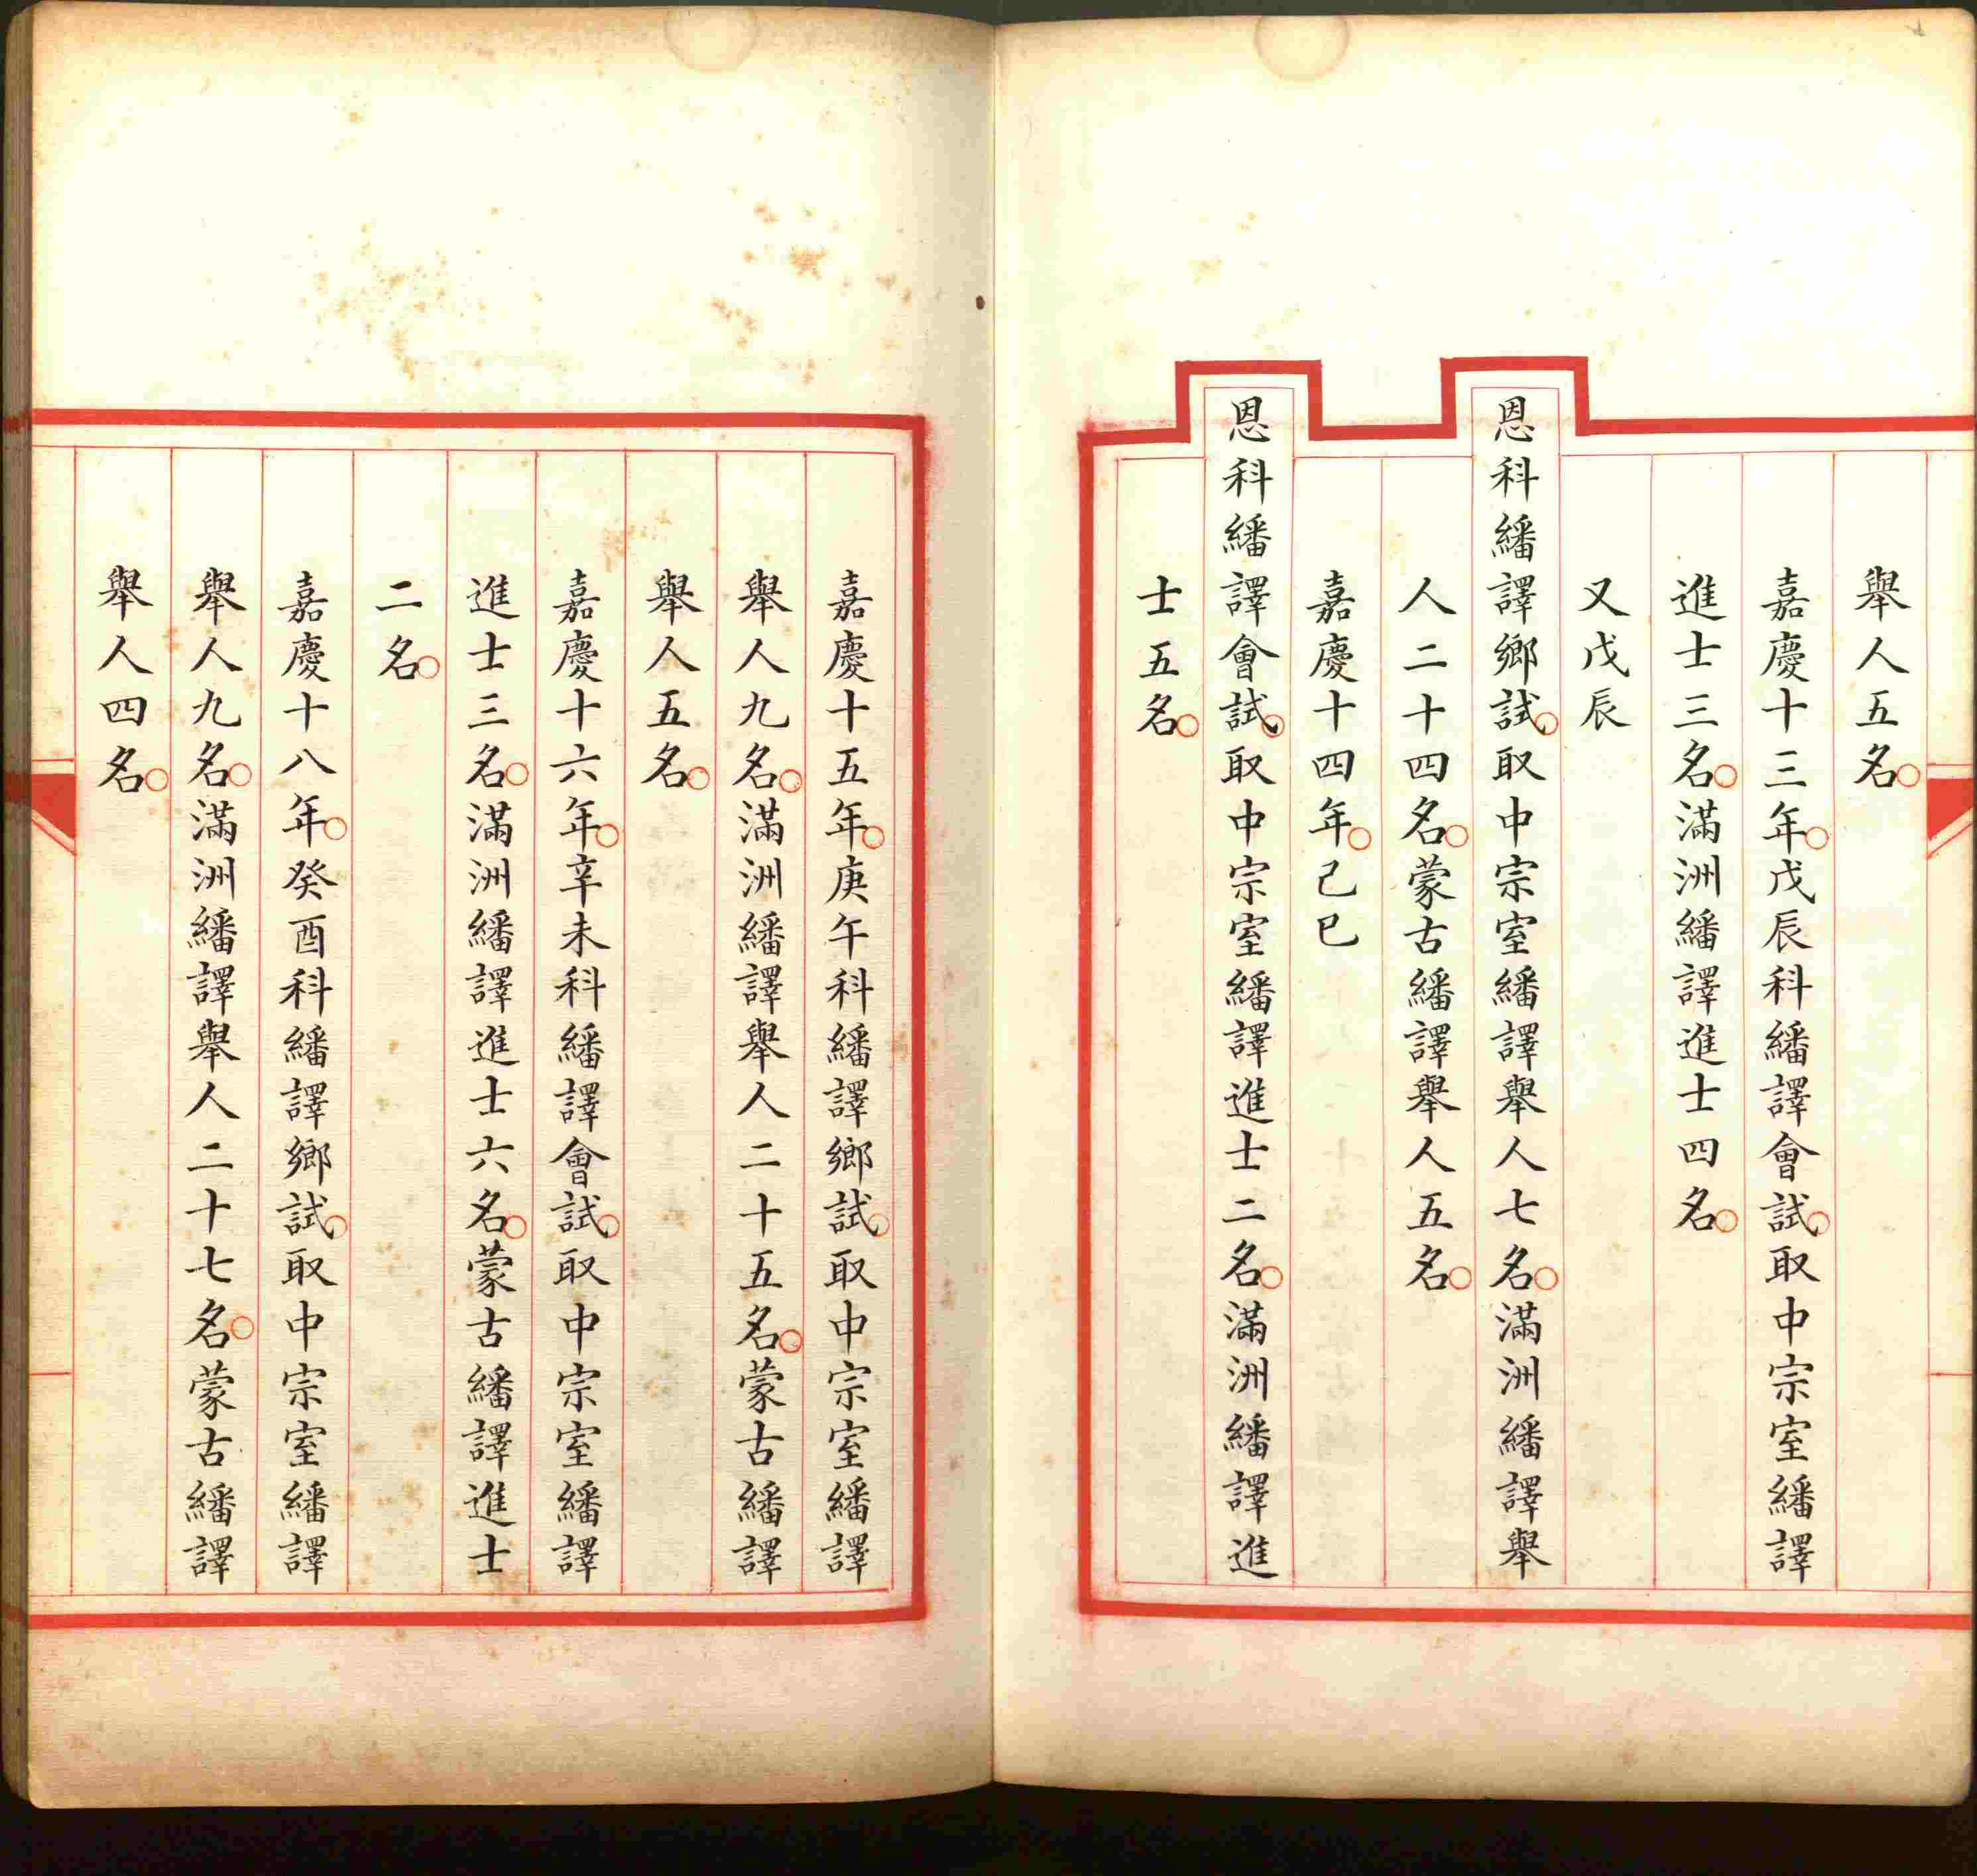 舉人五名
嘉慶十三年戊辰科繙譯會試取中宗室繙譯
進士三名滿洲繙譯進士四名
又戊辰
恩科繙譯鄉試取中宗室繙譯舉人七名滿洲繙譯舉
人二十四名蒙古繙譯舉人五名
嘉慶十四年己巳
恩科繙譯會試取中宗室繙譯進士二名滿洲繙譯進
士五名
嘉慶十五年庚午科繙譯鄉試取中宗室繙譯
舉人九名滿洲繙譯舉人二十五名蒙古繙譯
舉人五名
嘉慶十六年辛未科繙譯會試取中宗室繙譯
進士三名滿洲繙譯進士六名蒙古繙譯進士
二名
嘉慶十八年癸酉科繙譯鄉試取中宗室繙譯
舉人九名滿洲繙譯舉人二十七名蒙古繙譯
舉人四名